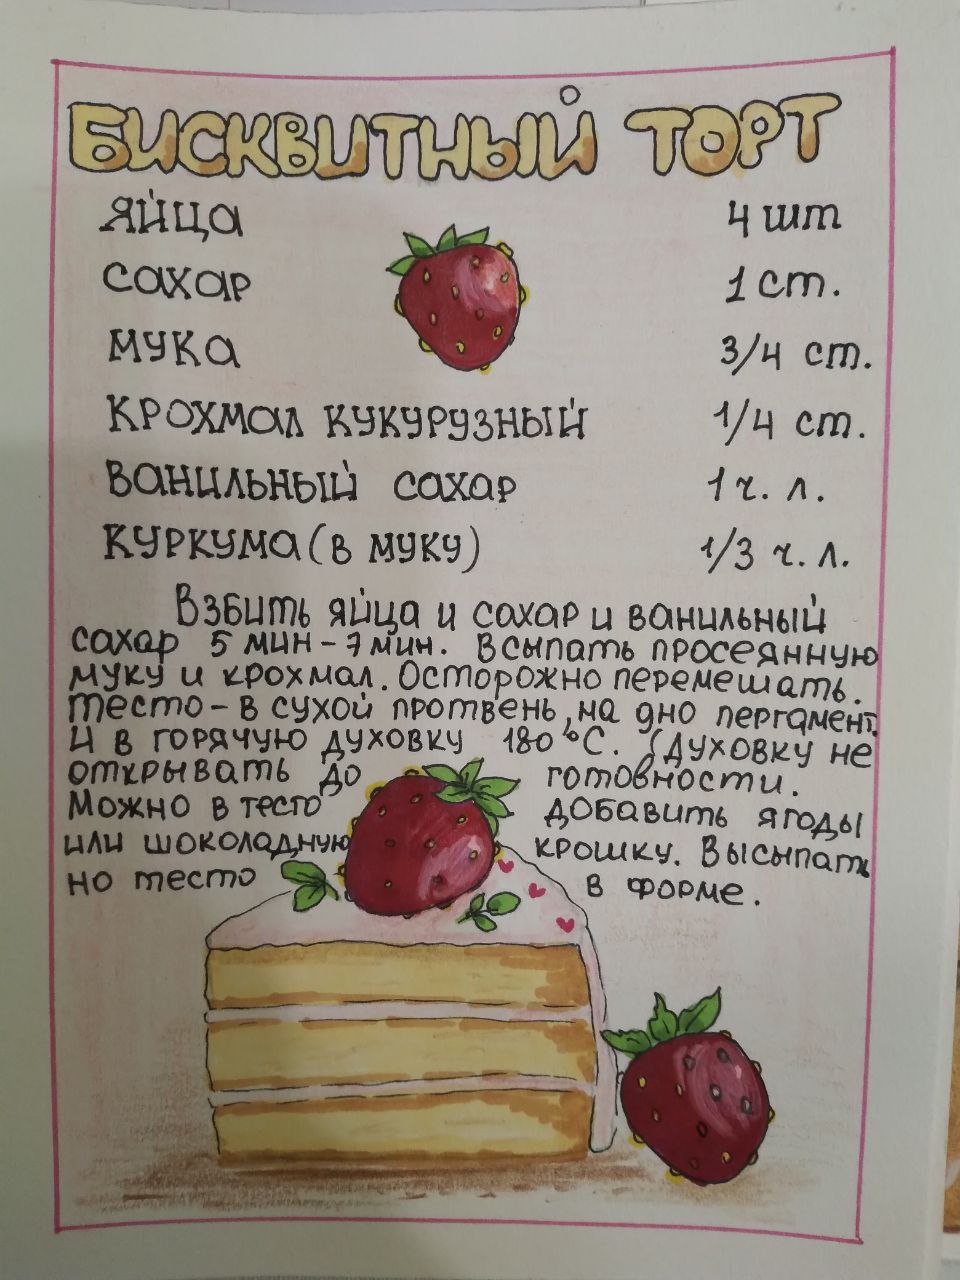 БИСКВИТНЫЙ ТОРТ
ЯЙЦА 4 шт
САХАР 1 ст.
МУКА 3/4 ст.
КРОХМАЛ КУКУРУЗНЫЙ 1/4 ст.
ВАНИЛЬНЫЙ САХАР 1 ч. л.
КУРКУМА (В МУКУ) 1/3 ч. л.
Взбить яйца и сахар и ванильный
сахар 5 мин - 7 мин. Всыпать просеянную
муку и крохмал. Осторожно перемешать.
Тесто - в сухой протвень, на дно пергамент.
И в горячую духовку 180°С. (Духовку не
открывать до готовности.
Можно в тесто добавить ягоды
или шоколадную крошку. Высыпать
но тесто в форме.